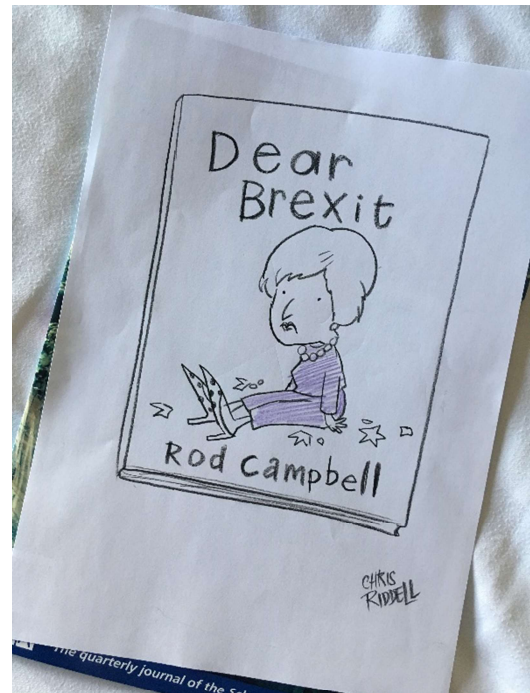 Dear
Brexit
Rod Campbell
CHRIS
RIDDELL
The quarterly journal of the